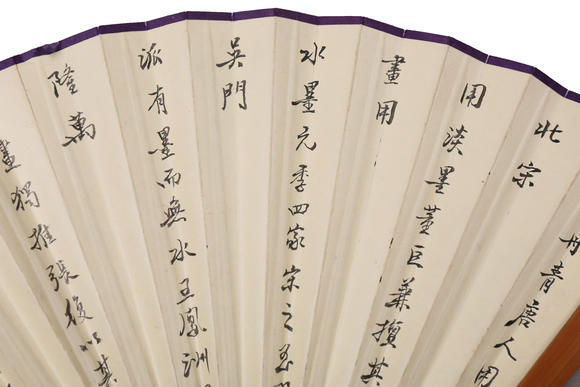 丹青唐人用
北宋
用淡墨董巨兼擅其
畫用
水墨元季四家宗之至
吳門
派有墨而無水王鳳洲
隆萬
畫獨推張復以其